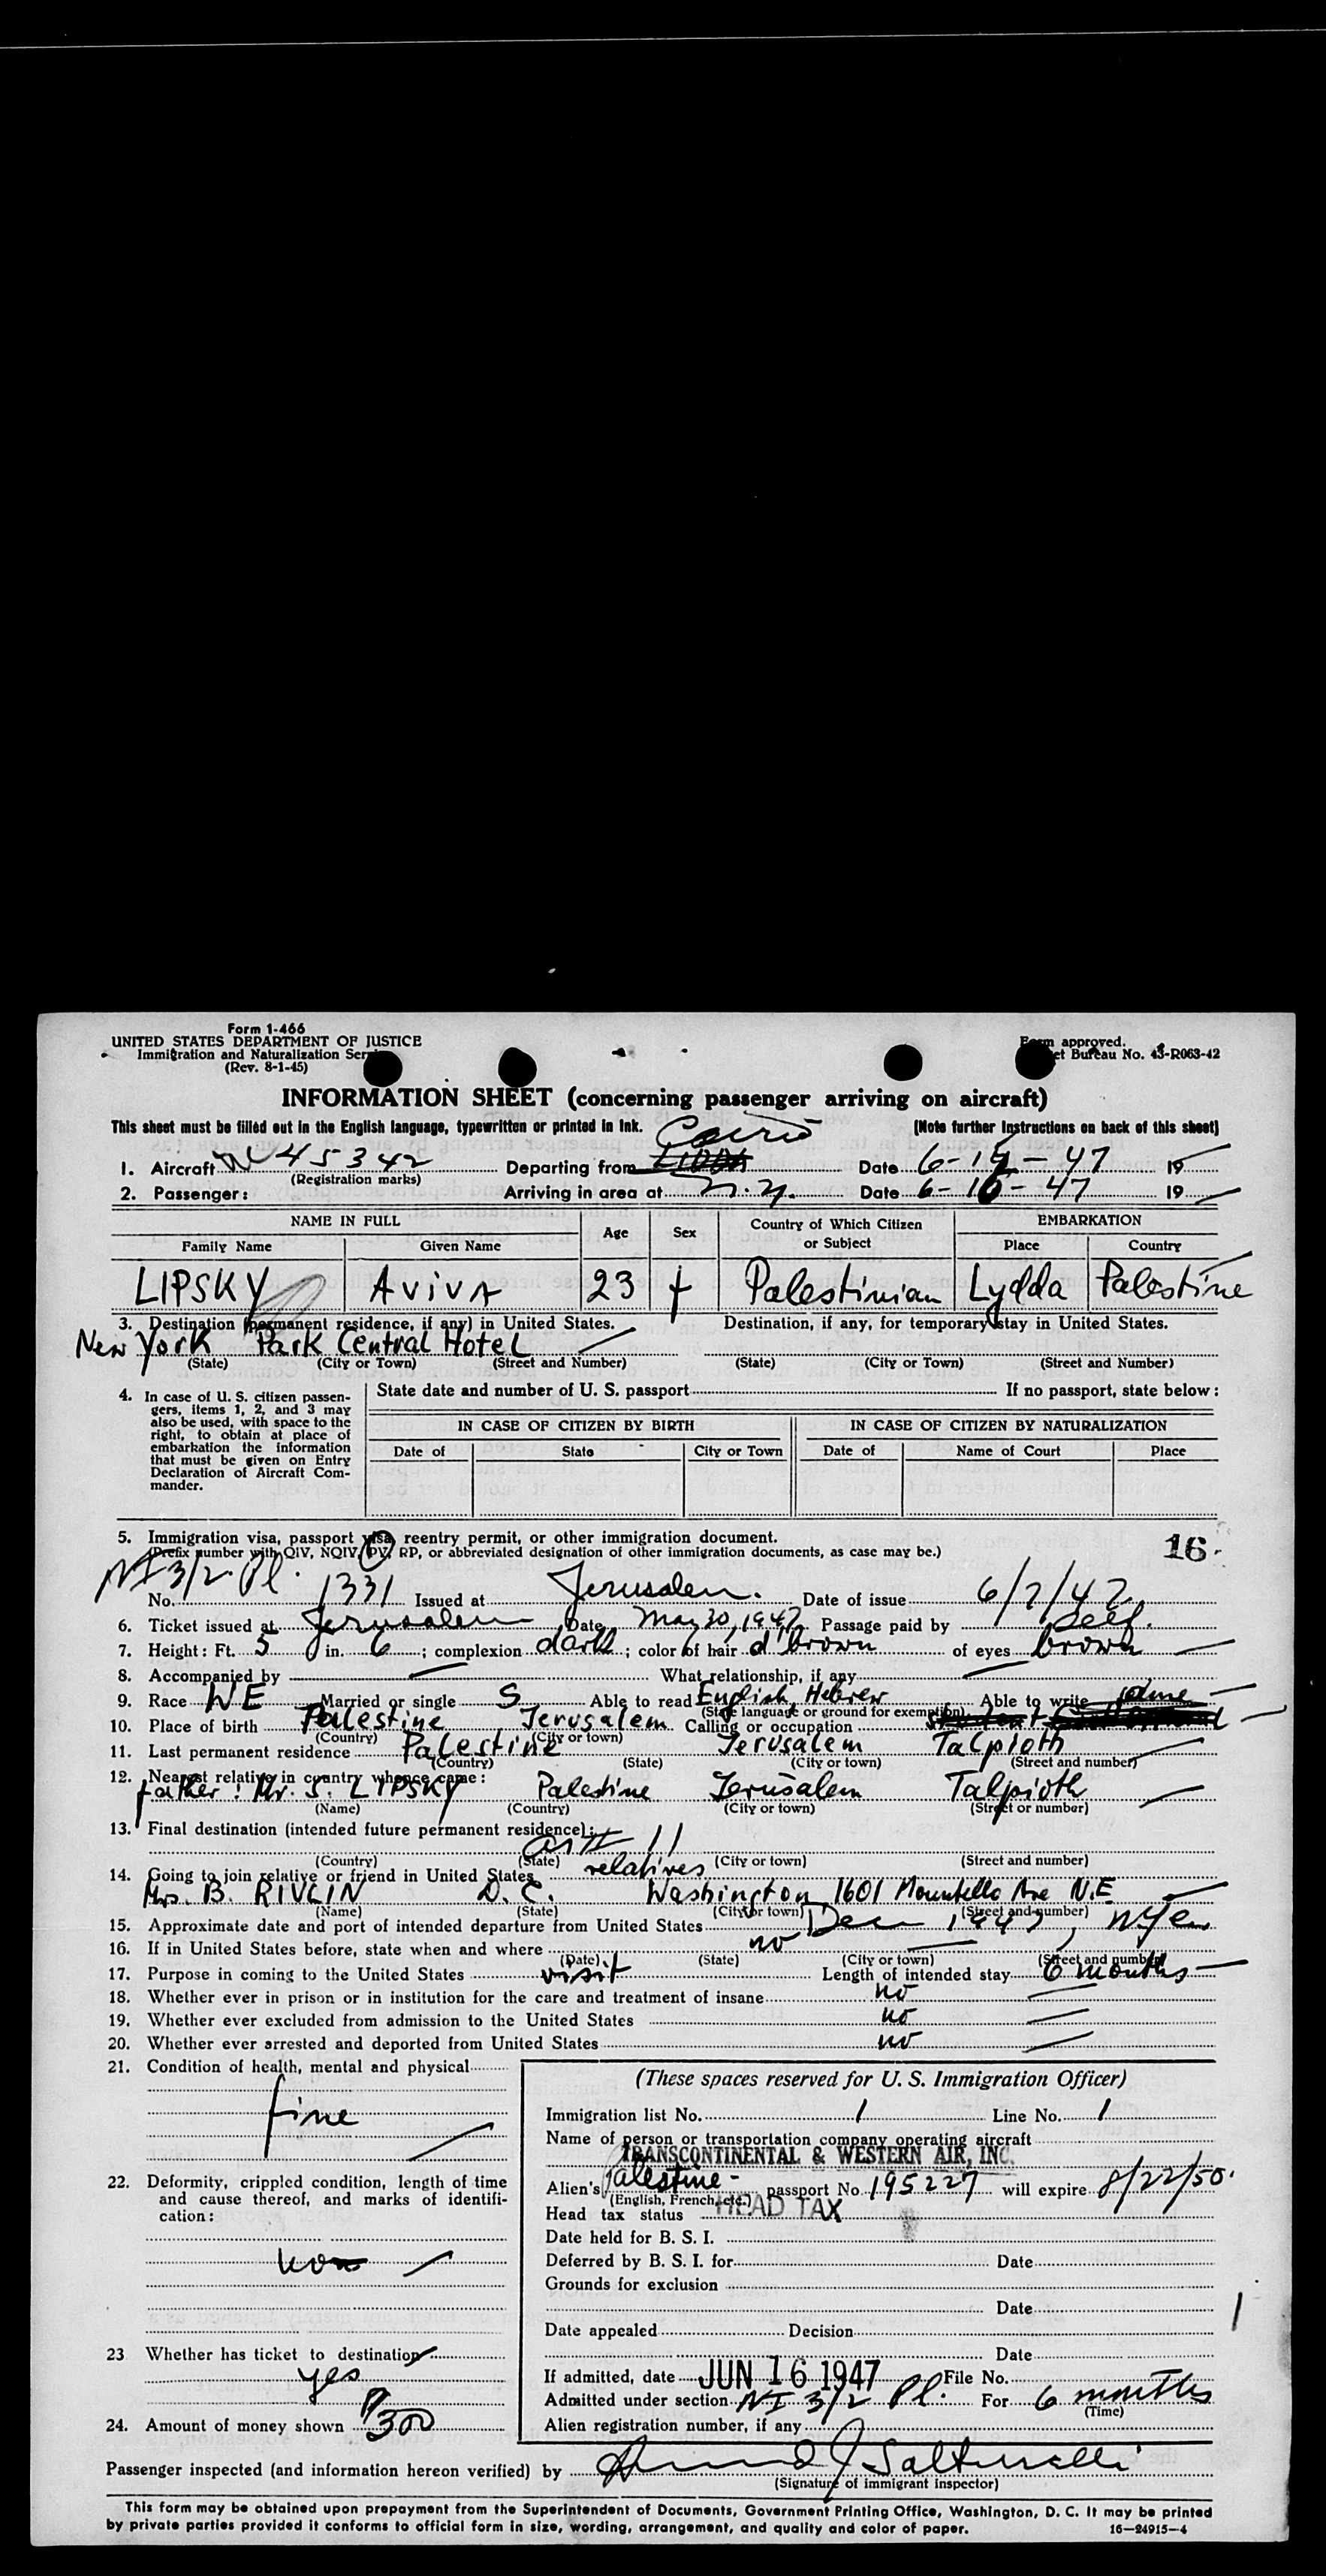 Form 1-466
UNITED STATES DEPARTMENT OF JUSTICE
Immigration and Naturalization
(Rev. 8-1-45)
Form approved.
Bureau No. 43-R063-42
INFORMATION SHEET (concerning passenger arriving on aircraft)
This sheet must be filled out in the English language, typewritten or printed in ink.
[Note further instructions on back of this sheet]
Cairo
1. Aircraft NC 45342 Departing from Date 6-14-47 19
(Registration marks)
2. Passenger: Arriving in area at N.Y. Date 6-16-47 19
NAME IN FULL Age Sex Country of Which Citizen or Subject EMBARKATION
Family Name Given Name Place Country
LIPSKY AVIVA 23 f Palestinian Lydda Palestine
3. Destination (permanent residence, if any) in United States. Destination, if any, for temporary stay in United States.
New York Park Central Hotel
(State) (City or Town) (Street and Number) (State) (City or Town) (Street and Number)
4. In case of U. S. citizen passengers, items 1, 2, and 3 may also be used, with space to the right, to obtain at place of embarkation the information that must be given on Entry Declaration of Aircraft Commander.
State date and number of U. S. passport If no passport, state below:
IN CASE OF CITIZEN BY BIRTH IN CASE OF CITIZEN BY NATURALIZATION
Date of State City or Town Date of Name of Court Place
5. Immigration visa, passport visa, reentry permit, or other immigration document.
16
(Prefix number with QIV, NQIV, PV, RP, or abbreviated designation of other immigration documents, as case may be.)
NI 3/2 Pl.
No. 1331 Issued at Jerusalem. Date of issue 6/2/47
6. Ticket issued at Jerusalem Date May 30, 1947 Passage paid by self.
7. Height: Ft. 5 in. 6; complexion dark; color of hair d'brown of eyes brown
8. Accompanied by What relationship, if any
9. Race WE Married or single S Able to read English, Hebrew Able to write same
(State language or ground for exemption)
10. Place of birth Palestine Jerusalem Calling or occupation
(Country) (City or town)
11. Last permanent residence Palestine Jerusalem Talpioth
(Country) (State) (City or town) (Street and number)
12. Nearest relative in country whence came:
father: Mr. S. LIPSKY Palestine Jerusalem Talpioth
(Name) (Country) (City or town) (Street or number)
13. Final destination (intended future permanent residence):
as # 11
(Country) (State) (City or town) (Street and number)
14. Going to join relative or friend in United States relatives
Mrs. B. RIVLIN D.C. Washington 1601 Mountello Ave N.E
(Name) (State) (City or town) (Street and number)
15. Approximate date and port of intended departure from United States Dec 1947,
16. If in United States before, state when and where no
(Date) (State) (City or town) (Street and number)
17. Purpose in coming to the United States visit Length of intended stay 6 months
18. Whether ever in prison or in institution for the care and treatment of insane no
19. Whether ever excluded from admission to the United States no
20. Whether ever arrested and deported from United States no
21. Condition of health, mental and physical
fine
22. Deformity, crippled condition, length of time and cause thereof, and marks of identification:
23 Whether has ticket to destination
yes
24. Amount of money shown $300
(These spaces reserved for U. S. Immigration Officer)
Immigration list No. 1 Line No. 1
Name of person or transportation company operating aircraft
TRANSCONTINENTAL & WESTERN AIR, INC.
Alien's Palestine - passport No. 195227 will expire 8/22/50.
(English, French, etc.)
Head tax status HEAD TAX
Date held for B. S. I.
Deferred by B. S. I. for Date
Grounds for exclusion
Date
Date appealed Decision
Date
If admitted, date JUN 16 1947 File No.
Admitted under section NI 3/2 Pl. For 6 months
(Time)
Alien registration number, if any
Passenger inspected (and information hereon verified) by
(Signature of immigrant inspector)
This form may be obtained upon prepayment from the Superintendent of Documents, Government Printing Office, Washington, D. C. It may be printed
by private parties provided it conforms to official form in size, wording, arrangement, and quality and color of paper. 16—24915-4